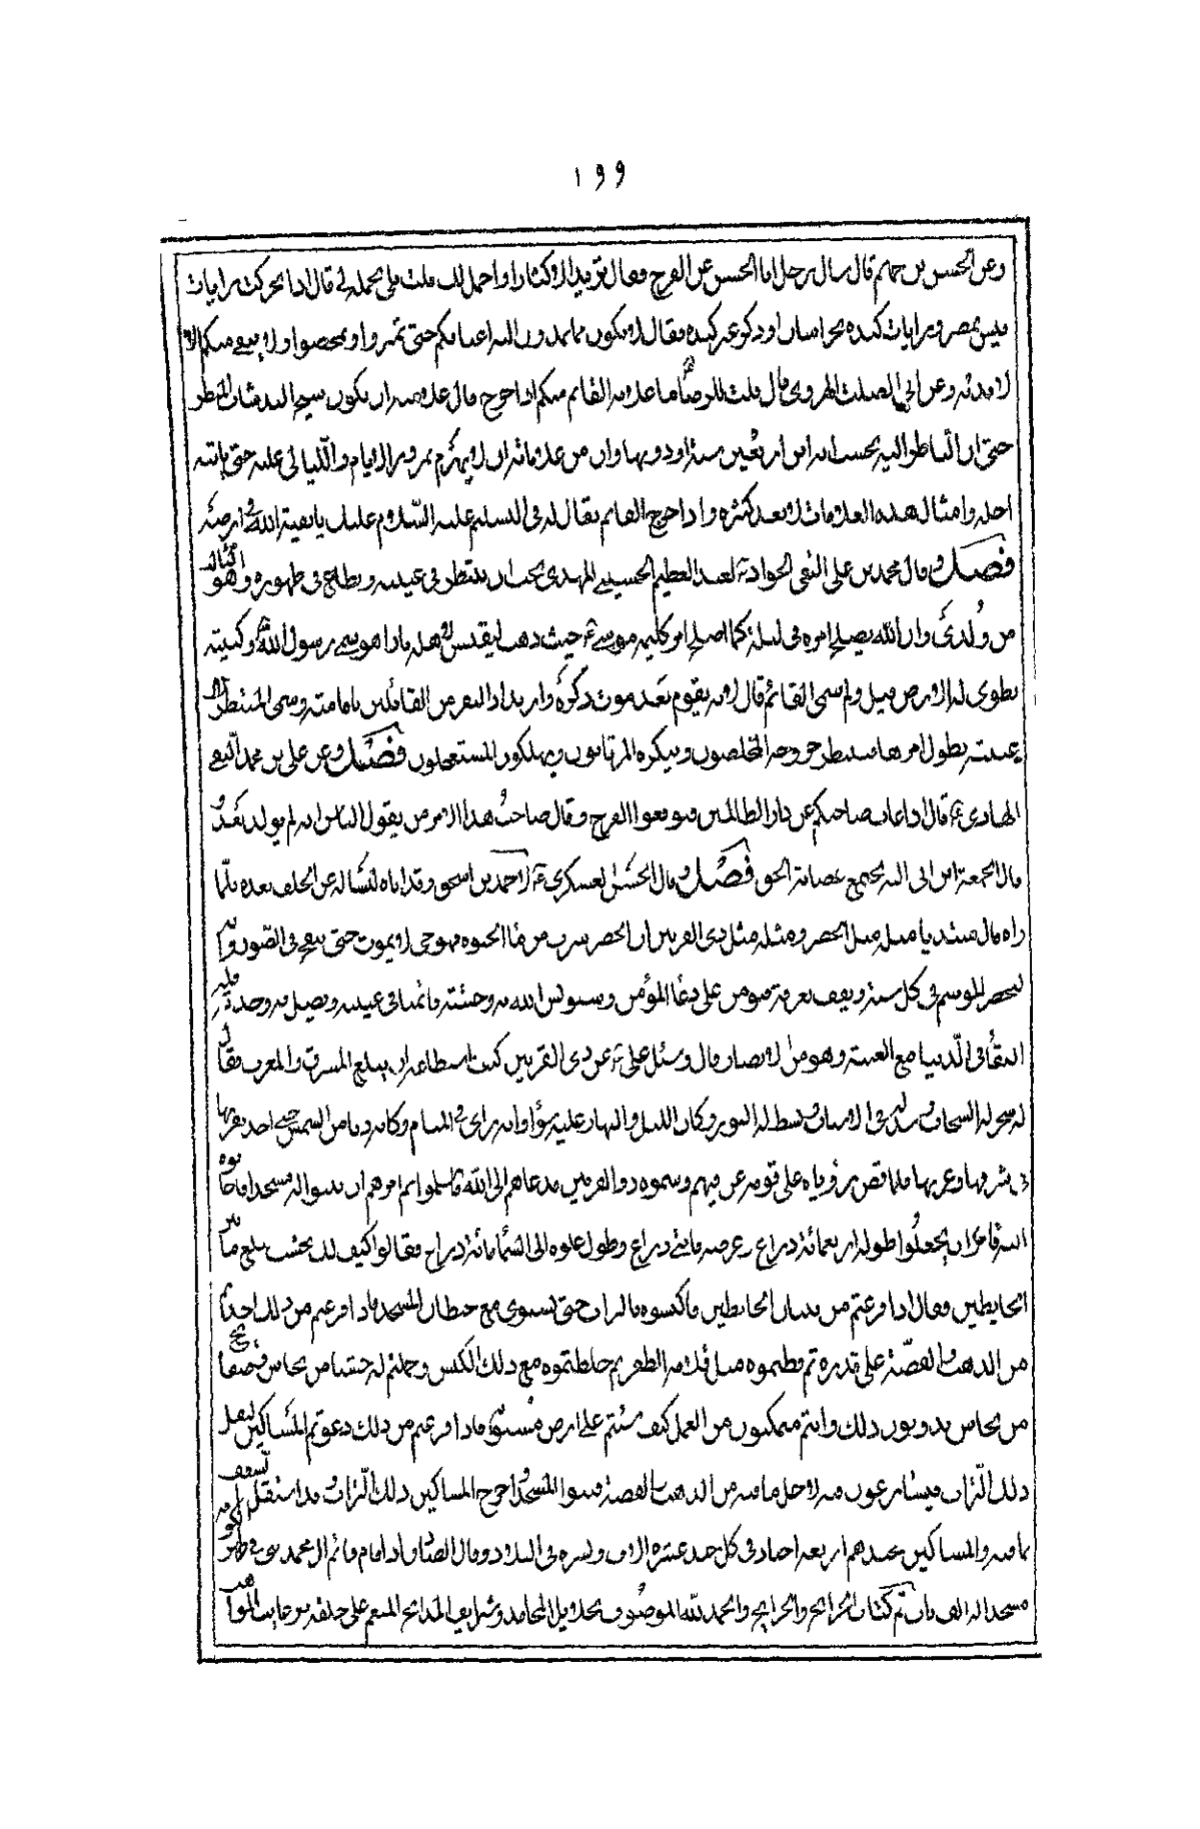 ١٩٩
وعن الحسن بن جهم قال سال رجل ابا الحسن عن الفرج فقال تريد الاكثار او احمل لك قلت بلى تجمله لي قال اذا تحركت رايات
قيس بمصر ورايات كنده بخراسان او ذكر غير كنده وقال لا يكون ما تمدون اليه اعناقكم حتى تميزوا وتمحصوا ولا يبقى منكم الا
الاندر وعن ابي الصلت الهروي قال قلت للرضا ما علامة القائم منكم اذا خرج قال علامته ان يكون شيخ السن شاب المنظر
حتى ان الناظر اليه يحسبه ابن اربعين سنة او دونها وان من علامته ان لا يهرم بمرور الايام والليالي عليه حتى ياتيه
اجله وامثال هذه العلامات لا تعد كثرة واذا خرج القايم يقال له في التسليم عليه السلام عليك يا بقية الله في ارضه
فصل وقال محمد بن علي التقي الجواد لعبد العظيم الحسني المهدي يجب ان ينتظر في غيبته ويطاع في ظهوره وهو الثالث
من ولدي وان الله يصلح امره في ليلة كما اصلح امر كليمه موسى حيث ذهب ليقتبس لاهله نارا هو سمي رسول الله وكنيته
يطوى له الارض قيل ولم سمي القائم قال لانه يقوم بعد موت ذكره وارتداد اكثر من القائلين بامامته وسمي المنتظر لان
غيبته يطول امرها فينتظر خروجه المخلصون وينكره المرتابون ويهلك المستعجلون فصل وعن علي بن محمد النقي
الهادي قال اذا غاب صاحبكم عن دار الظالمين فتوقعوا الفرج وقال صاحب هذا الامر من يقول الناس انه لم يولد بعد و
قال الجمعة ابن ابني اليه يجتمع عصابة الحق فصل وقال الحسن العسكري لاحمد بن اسحق وقد اتاه ليساله عن الخلف بعده فلما
راه قال مبتديا مثله مثل الخضر ومثله مثل ذي القرنين ان الخضر شرب من ماء الحيوة فهو حي لا يموت حتى ينفخ في الصور وانه
ليحضر الموسم في كل سنة ويقف بعرفة فيؤمن على دعاء المؤمن وسيونس الله به وحشة قائمنا في غيبته ويصل به وحدته فله
البقاء في الدنيا مع الغيبة وهو من الابصار قال وسئل علي عن ذي القرنين كيف استطاع ان يبلغ المشرق والمغرب فقال
له سخر له السحاب وبسط له النور وكان الليل والنهار عليه سواء وانه راى في المنام وكانه دنا من الشمس حتى اخذ بقرنيها
في شرقها وغربها فلما قص رؤياه على قومه عرفهم وسموه ذو القرنين فدعاهم الى الله فاسلموا ثم امرهم ان يبنوا له مسجدا فاجابوه
اليه فامر ان يجعلوا طوله اربعمائة ذراع وعرضه مائتي ذراع وطول علوه الى السماء مائة ذراع فقالوا كيف لك بخشب يبلغ ما بين
الحايطين فقال اذا فرغتم من بنيان الحايطين فاكبسوه بالتراب حتى يستوي مع حيطان المسجد فاذا فرغتم من ذلك اخذتم
من الذهب والفضة على قدره ثم قطعتموه مثل قلامة الظفر ثم خلطتموه مع ذلك الكبس وعملتم له خشبا من نحاس وصفايح
من نحاس تذوبون ذلك وانتم متمكنون من العمل كيف شئتم على ارض مستوية فاذا فرغتم من ذلك دعوتم المساكين لنقل
ذلك التراب فيسارعون فيه لاجل ما فيه من الذهب والفضة فبنوا المسجد واخرج المساكين ذلك التراب وقد استقل السقف
بما فيه والمساكين فجندهم اربعة اجناد في كل جند عشرة الاف ونشرهم في البلاد وقال الصادق اذا قام قائم ال محمد بنى في ظهر الكوفة
مسجدا له الف باب تم كتاب الخرائج والجرايح والحمد لله الموصوف بجلايل المحامد وشرايف المدائح المنعم على خلقه برغايب المواهب